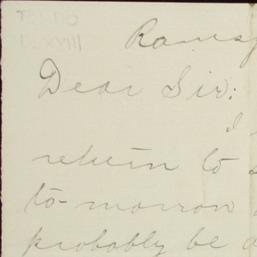 Dear Sir:
I
return to
to-morrow
probably be